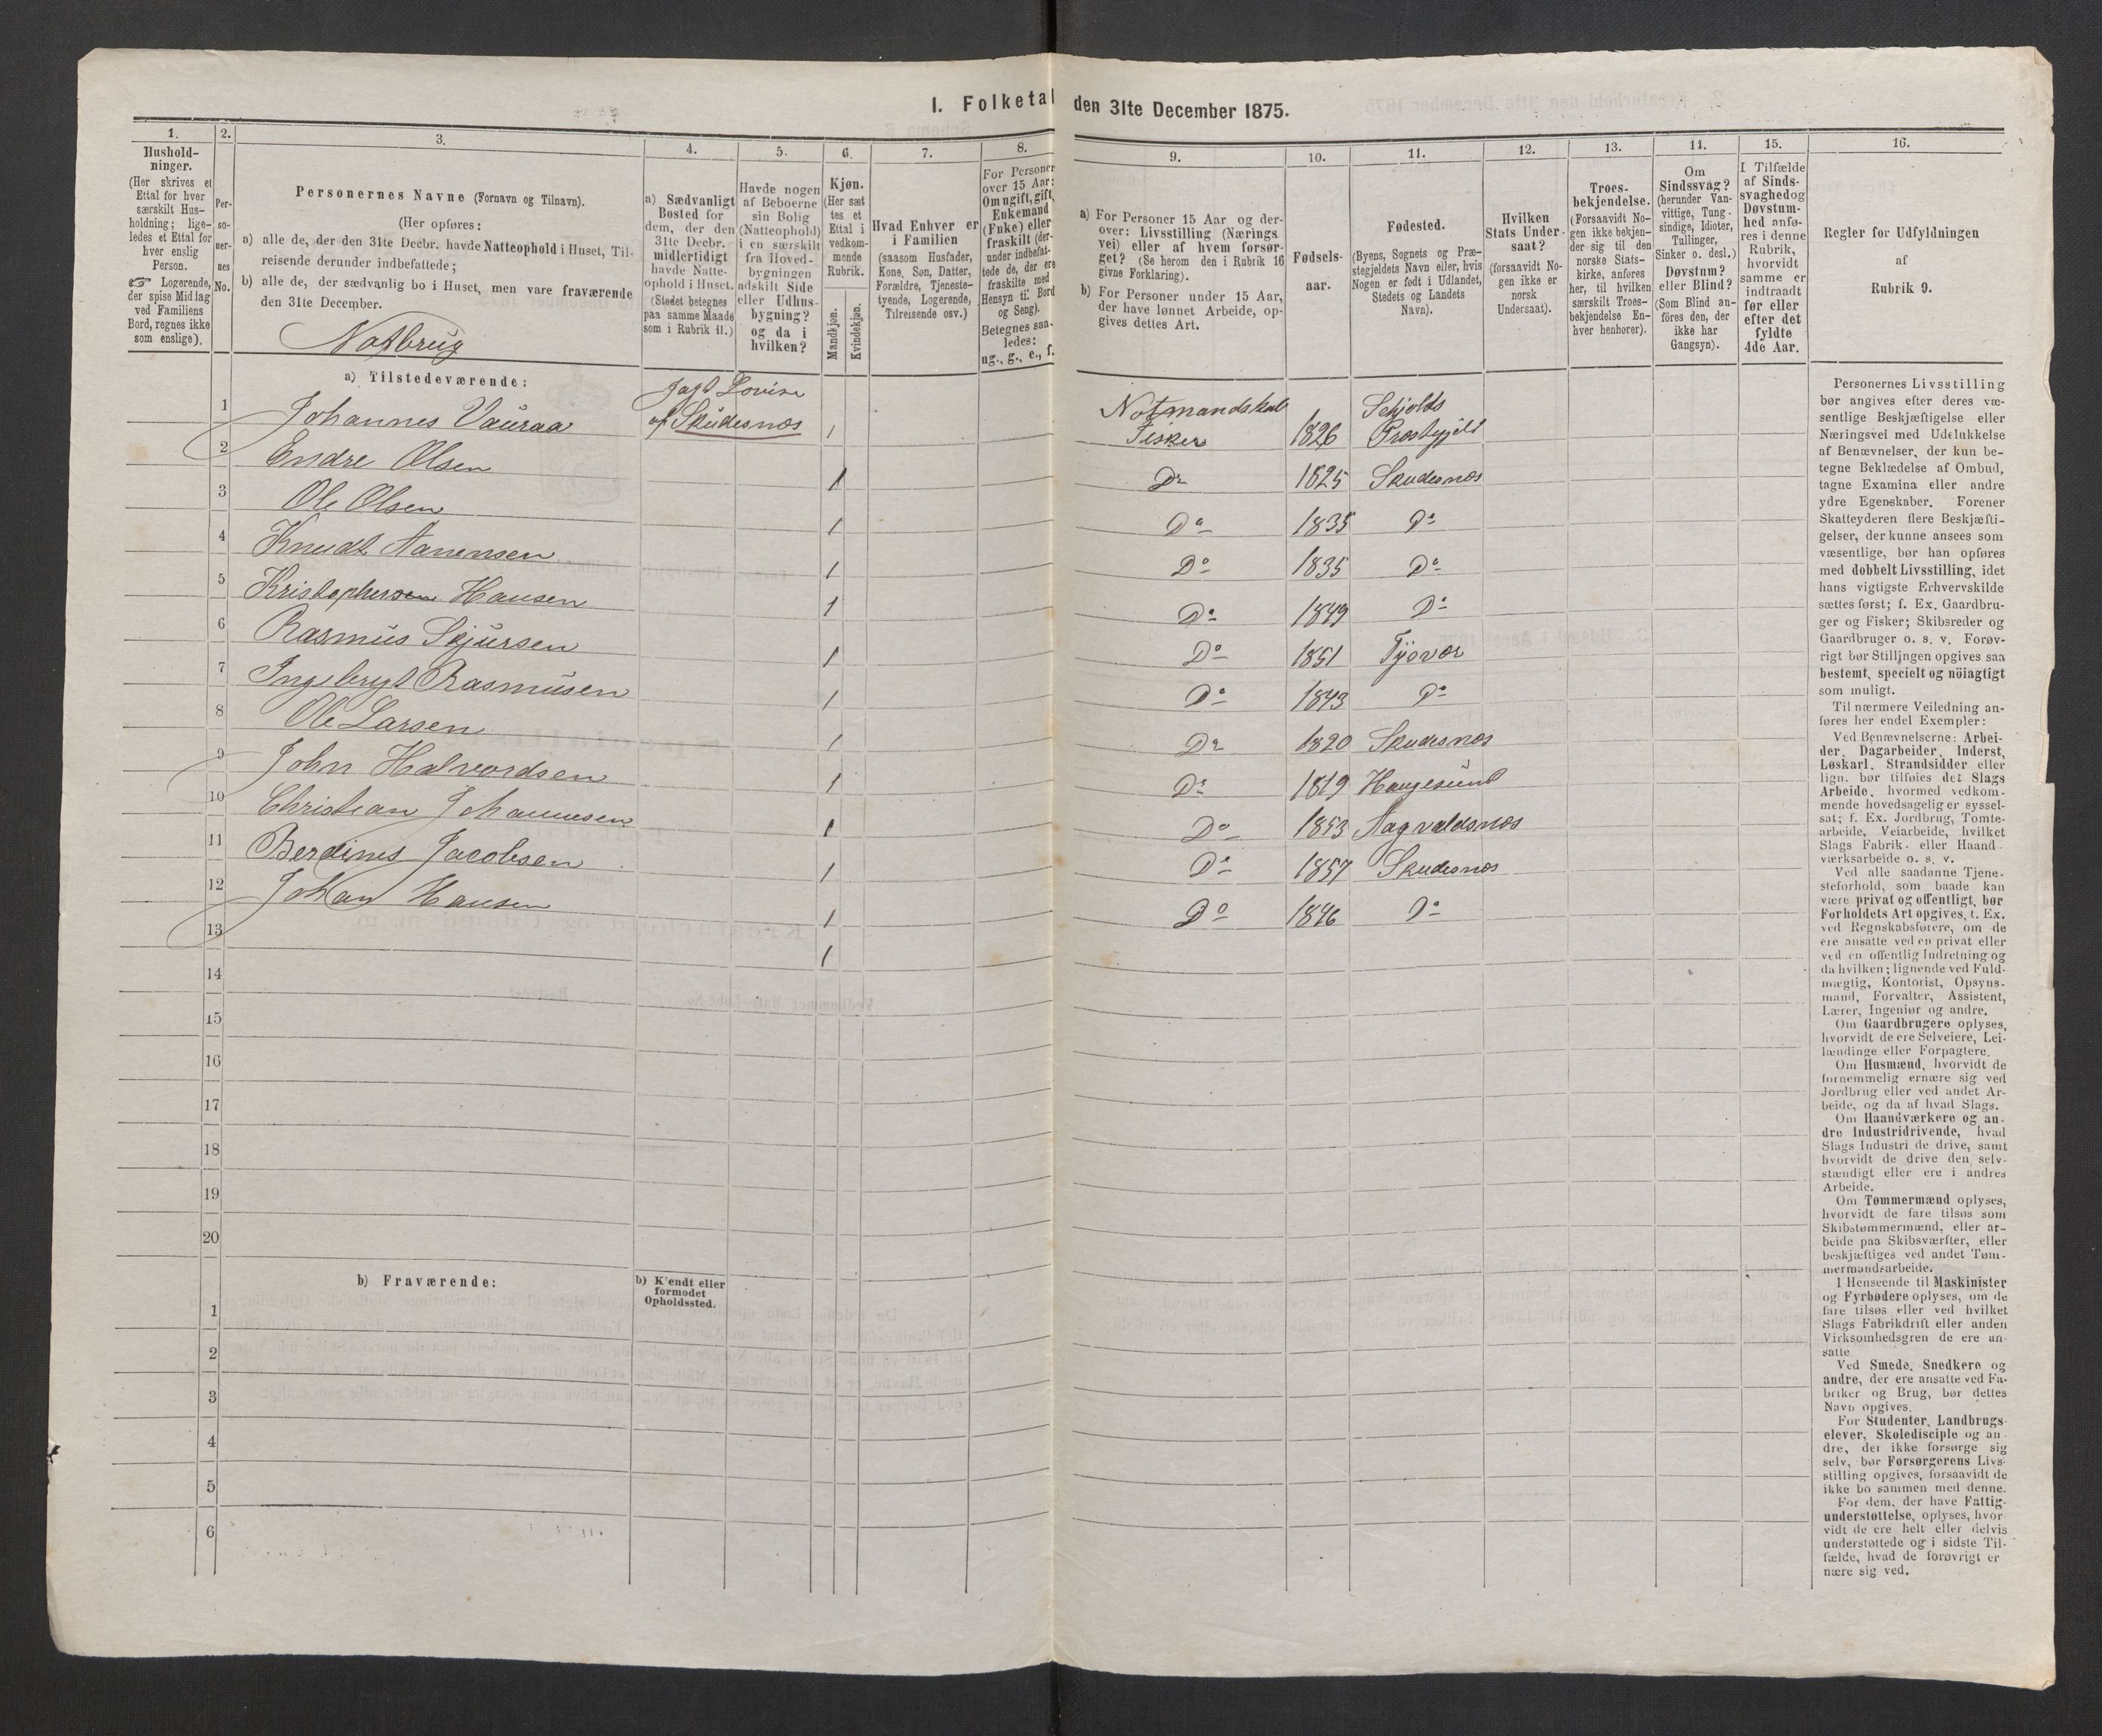 I. Folketal den 31te December 1875.
1.
Hushold-
ninger.
(Her skrives et
Ettal for hver
særskilt Hus-
holdning; lige-
ledes et Ettal for
hver enslig
Person.
☞ Logerende,
der spise Middag
ved Familiens
Bord, regnes ikke
som enslige).
2.
Per-
so-
ner-
nes
No.
3.
Personernes Navne (Fornavn og Tilnavn).
(Her opføres:
a) alle de, der den 31te Decbr. havde Natteophold i Huset, Til-
reisende derunder indbefattede;
b) alle de, der sædvanlig bo i Huset, men vare fraværende
den 31te December.
Notbrug
4.
a) Sædvanligt
Bosted for
dem, der den
31te Decbr.
midlertidigt
havde Natte-
ophold i Huset.
(Stedet betegnes
paa samme Maade
som i Rubrik 11.)
5.
Havde nogen
af Beboerne
sin Bolig
(Natteophold)
i en særskilt
fra Hoved-
bygningen
adskilt Side
eller Udhus-
bygning?
og da i
hvilken?
6.
Kjøn.
(Her sæt
tes et
Ettal i
vedkom-
mende
Rubrik.
Mandkjøn.
Kvindekjøn.
7.
Hvad Enhver er
i Familien
(saasom Husfader,
Kone, Søn, Datter,
Forældre, Tjeneste-
tyende, Logerende,
Tilreisende osv.)
8.
For Personer
over 15 Aar:
Om ugift, gift,
Enkemand
(Enke) eller
fraskilt (der-
under indbefat-
tede de, der ere
fraskilte med
Hensyn til Bord
og Seng).
Betegnes saa-
ledes:
ug., g., e., f.
9.
a) For Personer 15 Aar og der-
over: Livsstilling (Nærings
vei) eller af hvem forsør-
get? (Se herom den i Rubrik 16
givne Forklaring).
b) For Personer under 15 Aar,
der have lønnet Arbeide, op-
gives dettes Art.
10.
Fødsels-
aar.
11.
Fødested.
(Byens, Sognets og Præ-
stegjeldets Navn eller, hvis
Nogen er født i Udlandet,
Stedets og Landets
Navn).
12.
Hvilken
Stats Under-
saat?
(forsaavidt No-
gen ikke er
norsk
Undersaat).
13.
Troes-
bekjendelse.
(Forsaavidt No-
gen ikke bekjen-
der sig til den
norske Stats-
kirke, anføres
her, til hvilken
særskilt Troes-
bekjendelse En-
hver henhører).
14.
Om
Sindssvag?
(herunder Van-
vittige, Tung-
sindige, Idioter,
Tullinger,
Sinker o. desl.)
Døvstum?
eller Blind?
(Som Blind an-
föres den, der
ikke har
Gangsyn).
15.
I Tilfælde
af Sinds-
svaghed og
Døvstum-
hed anfø-
res i denne
Rubrik,
hvorvidt
samme er
indtraadt
før eller
efter det
fyldte
4de Aar.
16.
Regler for Udfyldningen
af
Rubrik 9.
a) Tilstedeværende:
Jagt Lovise
Notmandskab Schjolds
1 Johannes Vauraa af Skudesnæs 1 Fisker 1826 Prestegjeld
2 Endre Olsen 1 Do 1825 Skudesnæs
3 Ole Olsen 1 Do 1835 Do
4 Knudt Aanensen 1 Do 1835 Do
5 Kristophersen Hansen 1 Do 1849 Do
6 Rasmus Sjursen 1 Do 1851 Tysvær
7 Ingebrigt Rasmusen 1 Do 1843 Do
8 Ole Larsen 1 Do 1820 Skudesnæs
9 John Halvordsen 1 Do 1819 Haugesund
10 Christian Johannesen 1 Do 1853 Aagvaldsnæs
11 Berdines Jacobsen 1 Do 1857 Skudesnæs
12 Johan Hansen 1 Do 1846 Do
13 1
14
15
16
17
18
19
20
b) Fraværende:
b) Kendt eller
formodet
Opholdssted.
1
2
3
4
5
6
Personernes Livsstilling
bør angives efter deres væ-
sentlige Beskjæftigelse eller
Næringsvei med Udelukkelse
af Benævnelser, der kun be-
tegne Beklædelse af Ombud,
tagne Examina eller andre
ydre Egenskaber. Forener
Skatteyderen flere Beskjæfti-
gelser, der kunne ansees som
væsentlige, bør han opføres
med dobbelt Livsstilling, idet
hans vigtigste Erhvervskilde
sættes først; f. Ex. Gaardbru-
ger og Fisker; Skibsreder og
Gaardbruger o. s. v. Forøv-
rigt bør Stillingen opgives saa
bestemt, specielt og nöiagtigt
som muligt.
Til nærmere Veiledning an-
føres her endel Exempler:
Ved Benævnelserne: Arbei-
der, Dagarbeider, Inderst,
Løskarl, Strandsidder eller
lign. bør tilføies det Slags
Arbeide, hvormed vedkom-
mende hovedsagelig er syssel-
sat; f. Ex. Jordbrug, Tomte-
arbeide, Veiarbeide, hvilket
Slags Fabrik- eller Haand-
værksarbeide o. s. v.
Ved alle saadanne Tjene-
steforhold, som baade kan
være privat og offentligt, bør
Forholdets Art opgives, t. Ex.
ved Regnskabsførere, om de
ere ansatte ved en privat eller
ved en offentlig Indretning og
da hvilken; lignende ved Fuld-
mægtig, Kontorist, Opsyns-
mand, Forvalter, Assistent,
Lærer, Ingeniør og andre.
Om Gaardbrugere oplyses,
hvorvidt de ere Selveiere, Lei-
lændinge eller Forpagtere.
Om Husmænd, hvorvidt de
fornemmelig ernære sig ved
Jordbrug eller ved andet Ar-
beide, og da af hvad Slags.
Om Haandværkere og an-
dre Industridrivende, hvad
Slags Industri de drive, samt
hvorvidt de drive den selv-
stændigt eller ere i andres
Arbeide.
Om Tømmermænd oplyses,
hvorvidt de fare tilsøs som
Skibstømmermænd, eller ar-
beide paa Skibsværfter, eller
beskjæftiges ved andet Tøm-
mermandsarbeide.
I Henseende til Maskinister
og Fyrbødere oplyses, om de
fare tilsøs eller ved hvilket
Slags Fabrikdrift eller anden
Virksomhedsgren de ere an-
satte
Ved Smede, Snedkere og
andre, der ere ansatte ved Fa-
briker og Brug, bør dettes
Navn opgives.
For Studenter, Landbrugs-
elever, Skoledisciple og an-
dre, der ikke forsørge sig
selv, bør Forsørgerens Livs-
stilling opgives, forsaavidt de
ikke bo sammen med denne.
For dem, der have Fattig-
understøttelse, oplyses, hvor-
vidt de ere helt eller delvis
understøttede og i sidste Til-
fælde, hvad de forøvrigt er
nære sig ved.